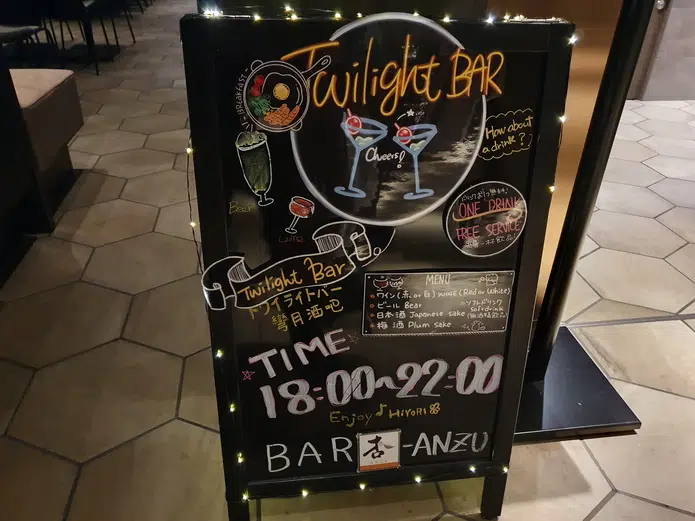 Twilight BAR
BREAKFAST
Cheers!
How about
a drink?
Bear
ONE DRINK
FREE SERVICE
Twilight Bar
トワイライトバー
彎月酒吧
MENU
ワイン(赤 or 白) WINE (Red or White)
ビール Bear
日本酒 Japanese sake
梅酒 Plum sake
ソフトドリンク
Softdrink
TIME
18:00~22:00
Enjoy♪HIYORI
BAR 杏-ANZU